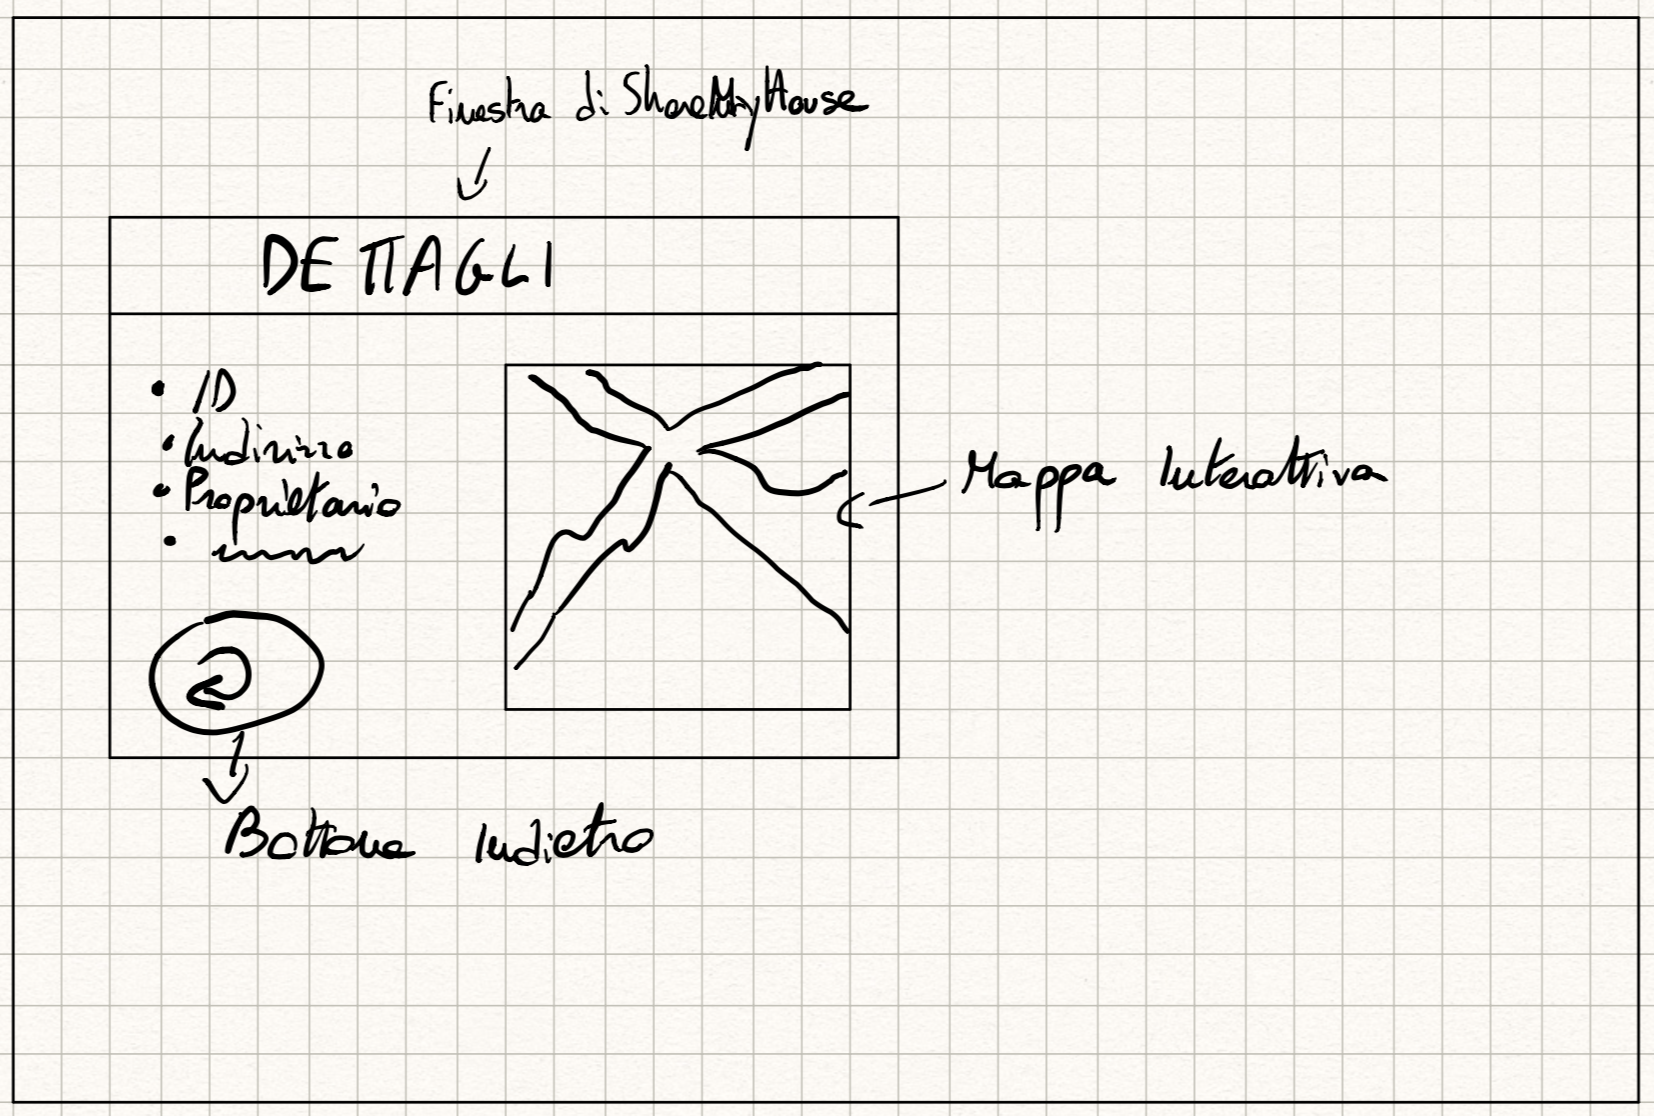 Finestra di ShareMyHouse
DETTAGLI
• ID
• Indirizzo
• Proprietario
•
Mappa Interattiva
Bottone Indietro